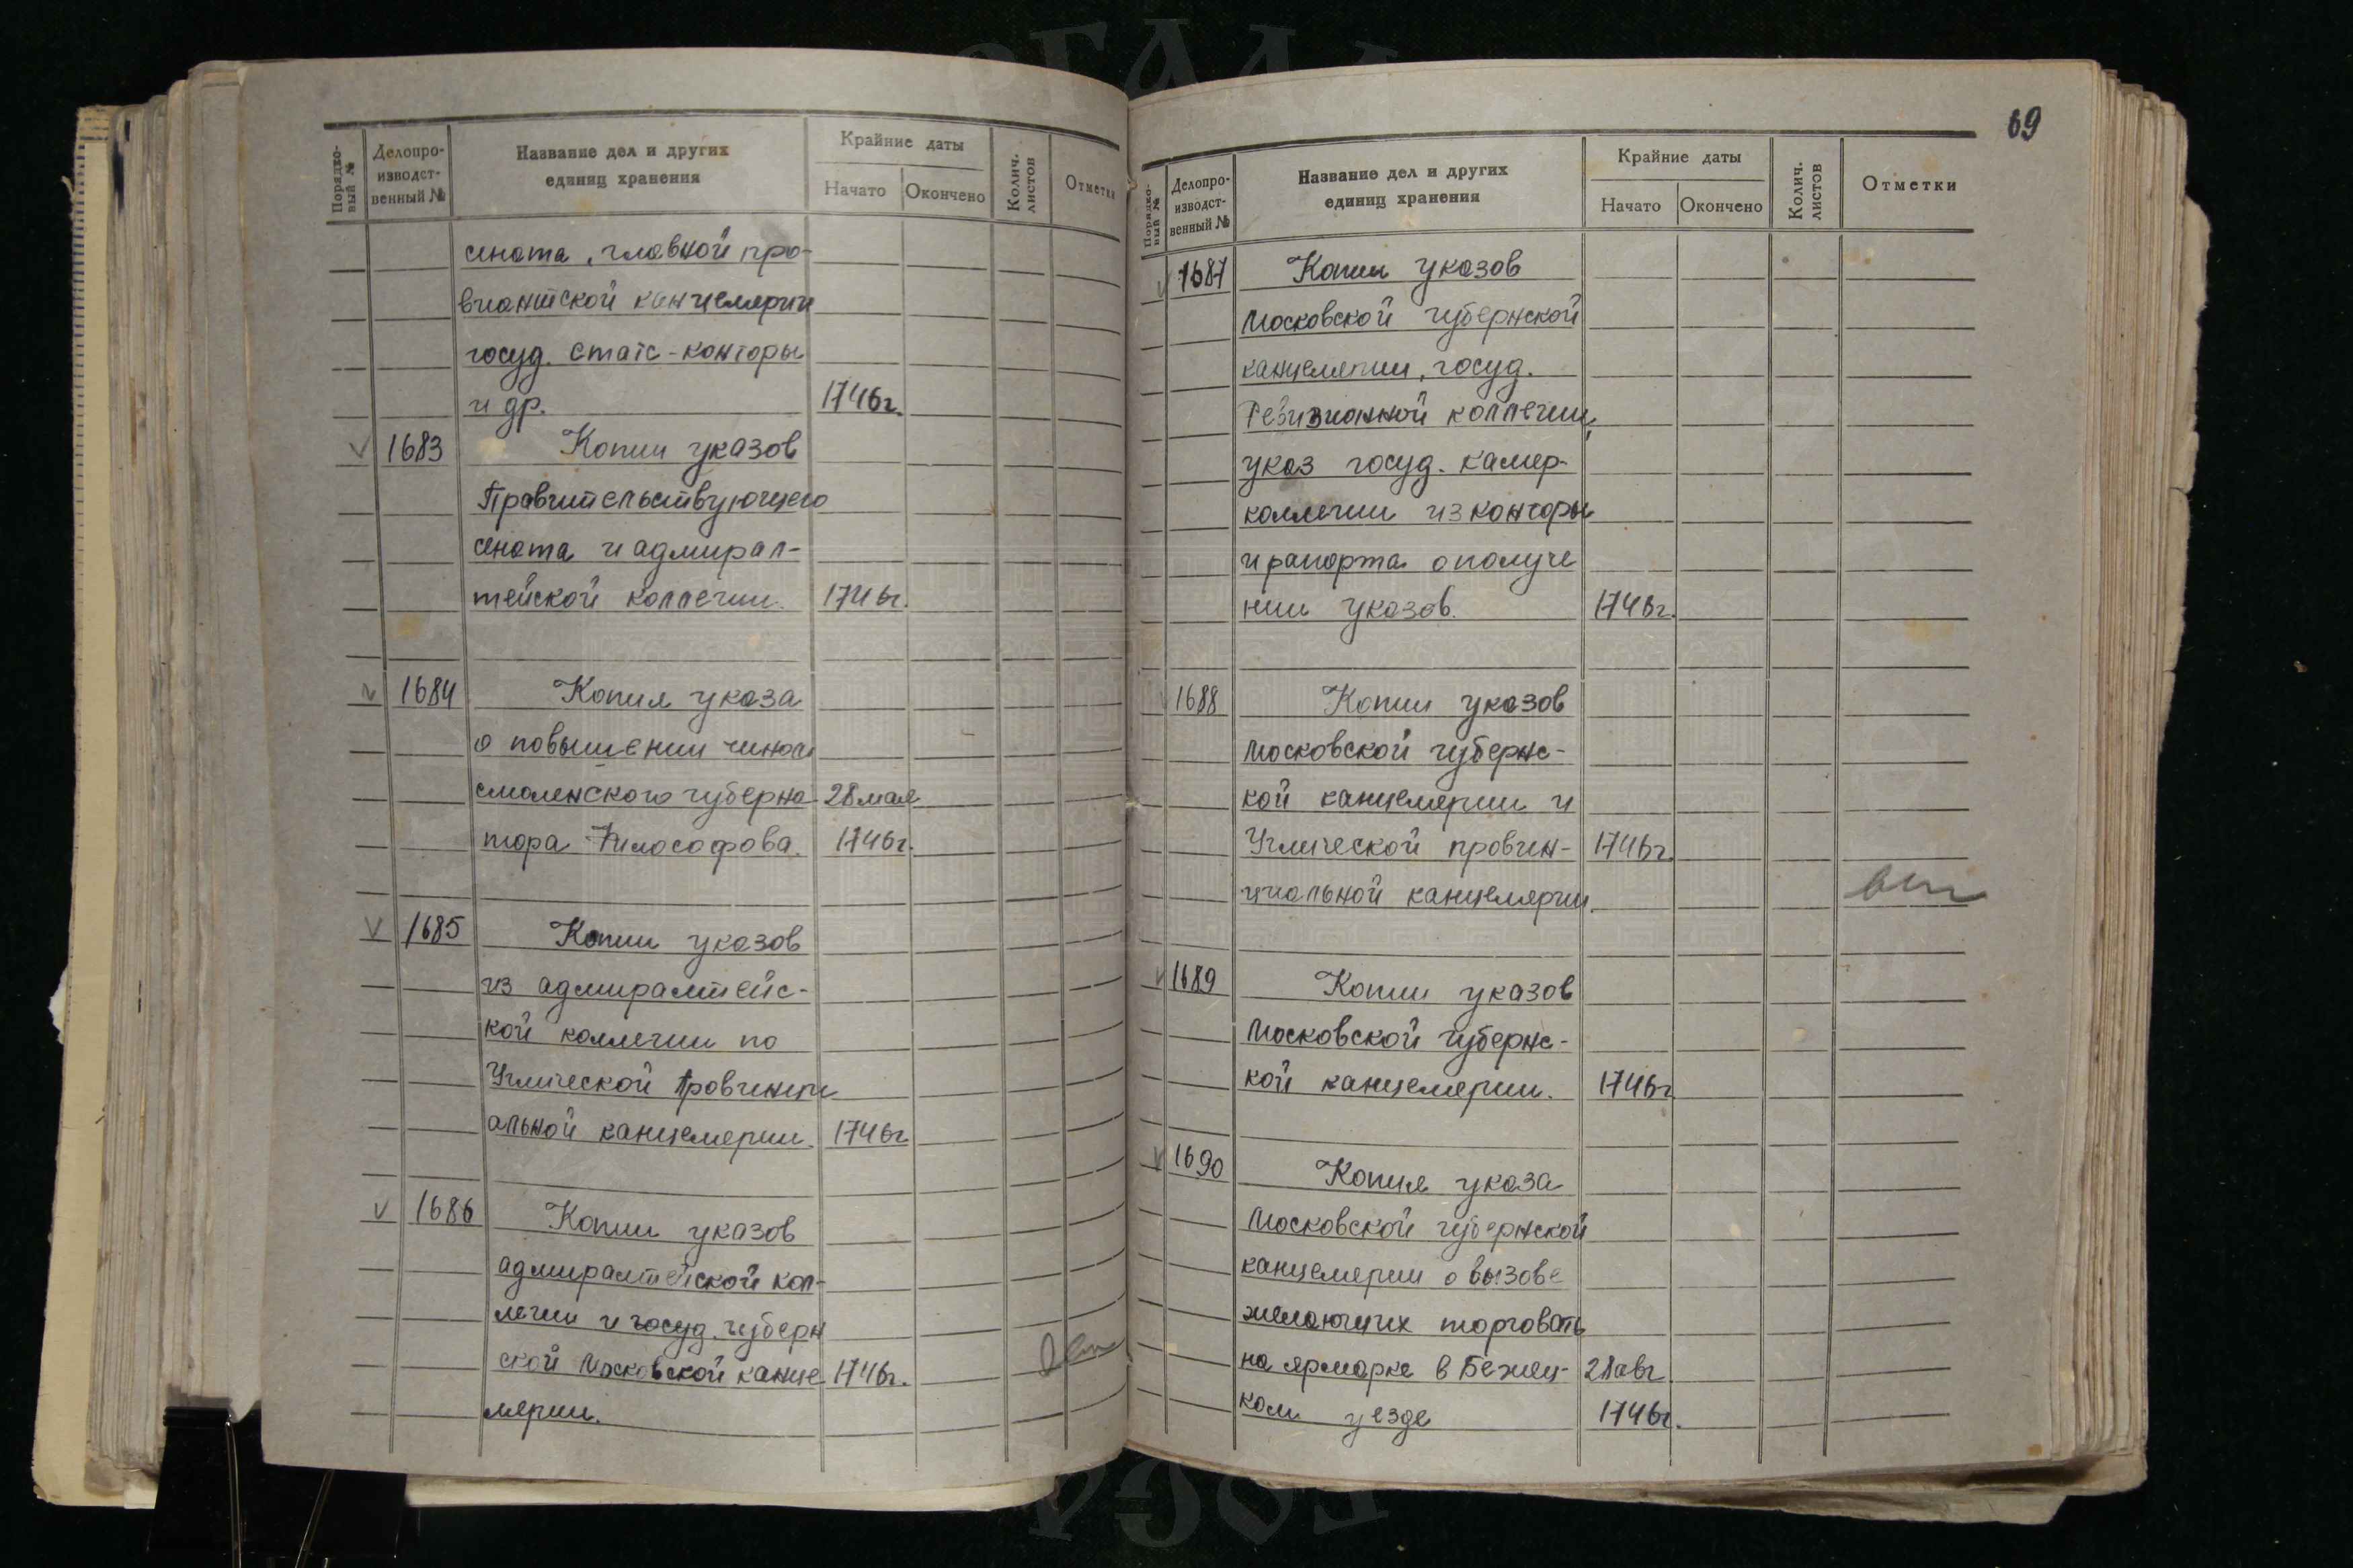 Порядко-
вый №
Делопро-
изводст-
венный №
Название дел и других
единиц хранения
Крайние даты
Начато
Окончено
Колич.
листов
Отметки
сената, главной про-
виантской канцелярии
госуд. статс-конторы
и др. 1746г.
V 1683 Копии указов
Правительствующего
сената и адмирал-
тейской коллегии. 1746г.
V 1684 Копия указа
о повышении чином
смоленского губерна 28 мая
тора Философова. 1746г.
V 1685 Копии указов
из адмиралтейс-
кой коллегии по
Угличской провинци
альной канцелярии. 1746г.
V 1686 Копии указов
адмиралтейской кол-
легии и госуд. губерн
ской Московской канце 1746г.
лярии.
69
Порядко-
вый №
Делопро-
изводст-
венный №
Название дел и других
единиц хранения
Крайние даты
Начато
Окончено
Колич.
листов
Отметки
V 1687 Копии указов
Московской губернской
канцелярии, госуд.
Ревизионной коллегии,
указ госуд. камер-
коллегии из конторы
и рапорта о получе
нии указов. 1746г.
V 1688 Копии указов
Московской губернс-
кой канцелярии и
Угличской провин- 1746г.
циальной канцелярии.
V 1689 Копии указов
Московской губернс-
кой канцелярии. 1746г
V 1690 Копия указа
Московской губернской
канцелярии о вызове
желающих торговать
на ярмарке в Бежец- 28 авг
ком уезде 1746г.